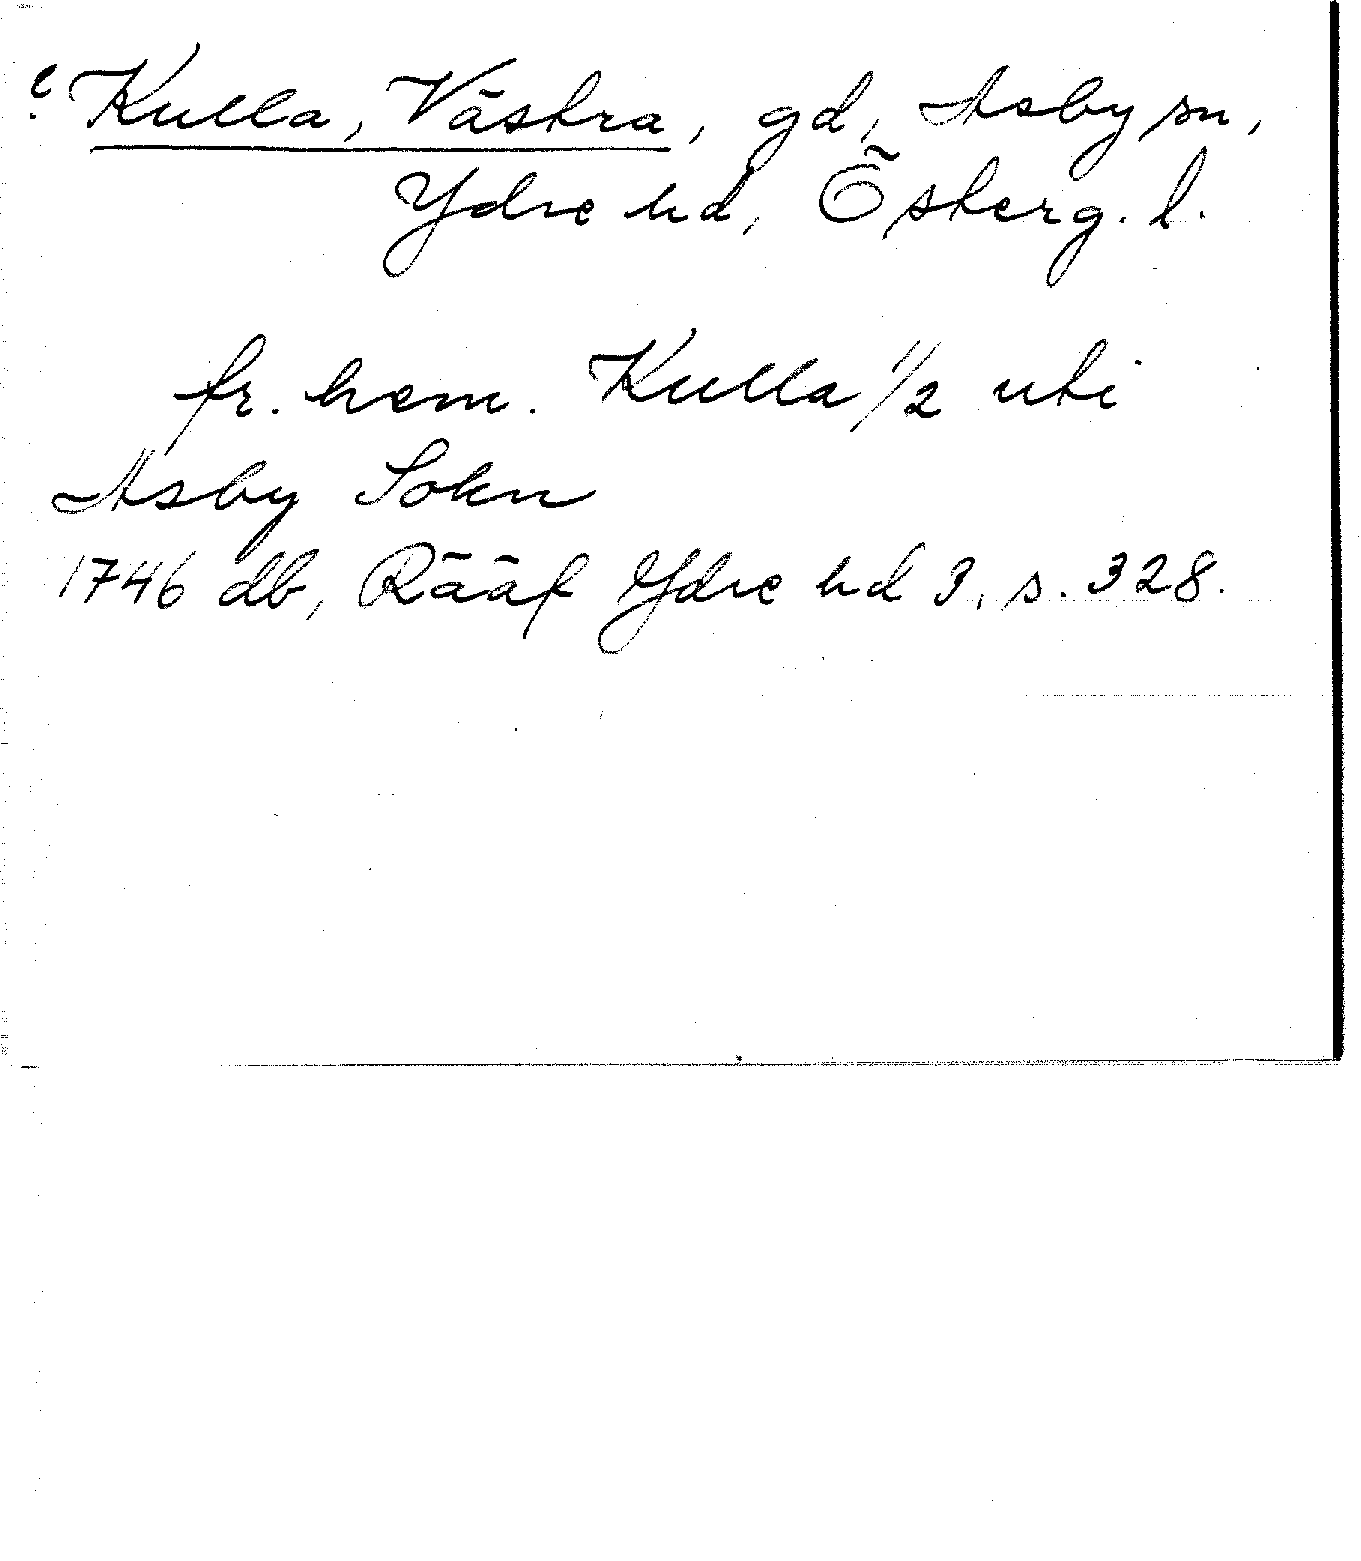 ? Kulla, Västra, gd, Asby sn,
Ydre hd, Österg. l.
fr. hem. Kulla 1/2 uti
Asby Sokn
1746 db, Rääf Ydre hd 3, s. 328.